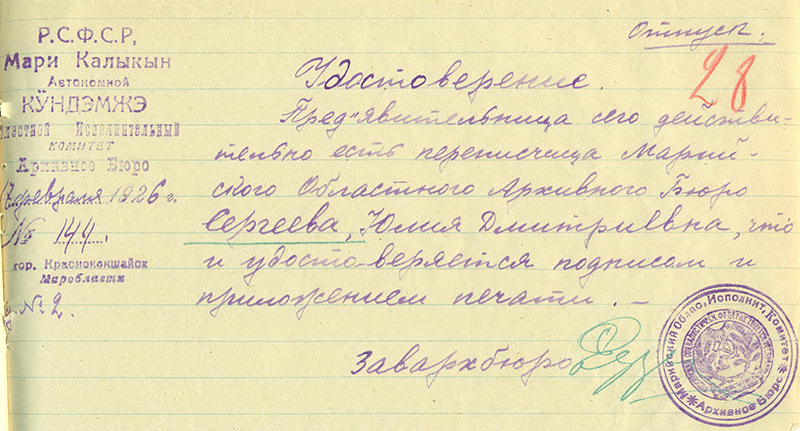 Р.С.Ф.С.Р,
Мари Калыкын
Автономной
КӰНДЭМЖЭ
бластной Исполнительный
КОМИТЕТ
Архивное Бюро
февраля 1926 г.
№ 144.
гор. Краснококшайск
Маробласти
№ 2.
Отпуск.
28
Удостоверение.
Пред"явительница сего действи-
тельно есть переписчица Марий-
ского Областного Архивного Бюро
Сергеева, Юлия Дмитриевна, что
и удосто-веряется подписом и
приложением печати. –
Завархбюро
Марийский Облас, Исполнит, Комитет
Архивное Бюро